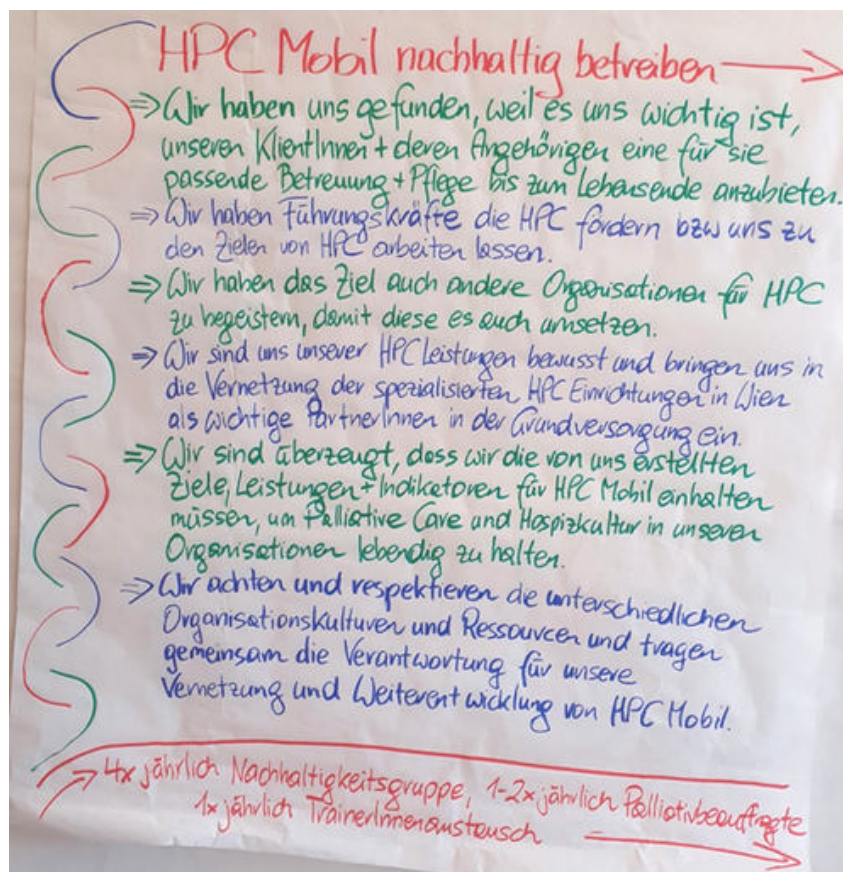 HPC Mobil nachhaltig betreiben
⇒ Wir haben uns gefunden, weil es uns wichtig ist,
unseren KlientInnen + deren Angehörigen eine für sie
passende Betreuung + Pflege bis zum Lebensende anzubieten.
⇒ Wir haben Führungskräfte die HPC fördern bzw uns zu
den Zielen von HPC arbeiten lassen.
⇒ Wir haben das Ziel auch andere Organisationen für HPC
zu begeistern, damit diese es auch umsetzen.
⇒ Wir sind uns unserer HPC Leistungen bewusst und bringen uns in
die Vernetzung der spezialisierten HPC Einrichtungen in Wien
als wichtige PartnerInnen in der Grundversorgung ein.
⇒ Wir sind überzeugt, dass wir die von uns erstellten
Ziele, Leistungen + Indikatoren für HPC Mobil einhalten
müssen, um Palliative Care und Hospizkultur in unseren
Organisationen lebendig zu halten.
⇒ Wir achten und respektieren die unterschiedlichen
Organisationskulturen und Ressourcen und tragen
gemeinsam die Verantwortung für unsere
Vernetzung und Weiterentwicklung von HPC Mobil.
4x jährlich Nachhaltigkeitsgruppe, 1-2x jährlich Palliativbeauftragte
1x jährlich TrainerInnenaustausch